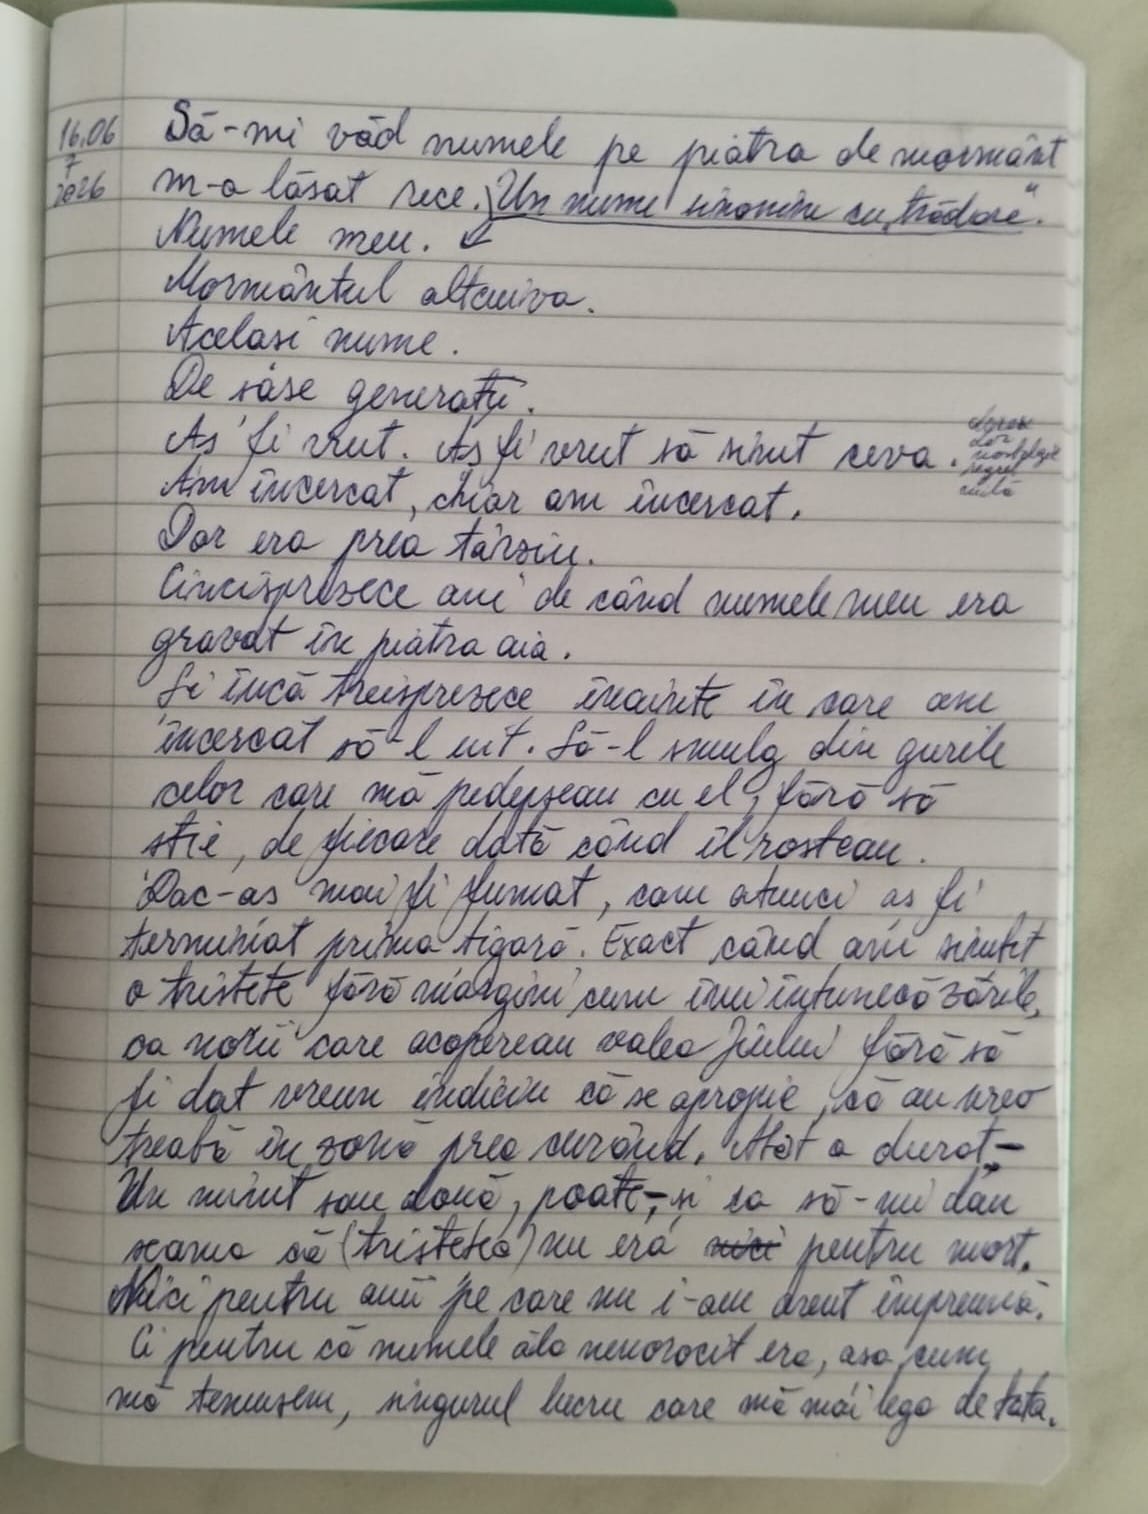 16.06
7
2026
Să-mi văd numele pe piatra de mormânt
m-a lăsat rece. Un nume sinonim cu „trădare".
Numele meu.
Mormântul altcuiva.
Același nume.
De șase generații.
Aș fi vrut. Aș fi vrut să simt ceva.
dor
nostalgie
regret
milă
Am încercat, chiar am încercat.
Dar era prea târziu.
Cincisprezece ani de când numele meu era
gravat în piatra aia.
Și încă treisprezece înainte în care am
încercat să-l uit. Să-l smulg din gurile
celor care mă pedepseau cu el, fără să
știe, de fiecare dată când îl rosteau.
Dac-aș mai fi fumat, cam atunci aș fi
terminat prima țigară. Exact când am simțit
o tristețe fără margini cum îmi întunecă zările,
ca norii care acopereau valea Jiului fără să
fi dat vreun indiciu că se apropie, că au vreo
treabă în zonă prea curând. Atât a durat -
Un minut sau două, poate, - și ca să-mi dau
seama că (tristețea) nu era nici pentru mort.
Nici pentru anii pe care nu i-am avut împreună.
Ci pentru că numele ăla nenorocit era, așa cum
mă temusem, singurul lucru care mă mai lega de tata.